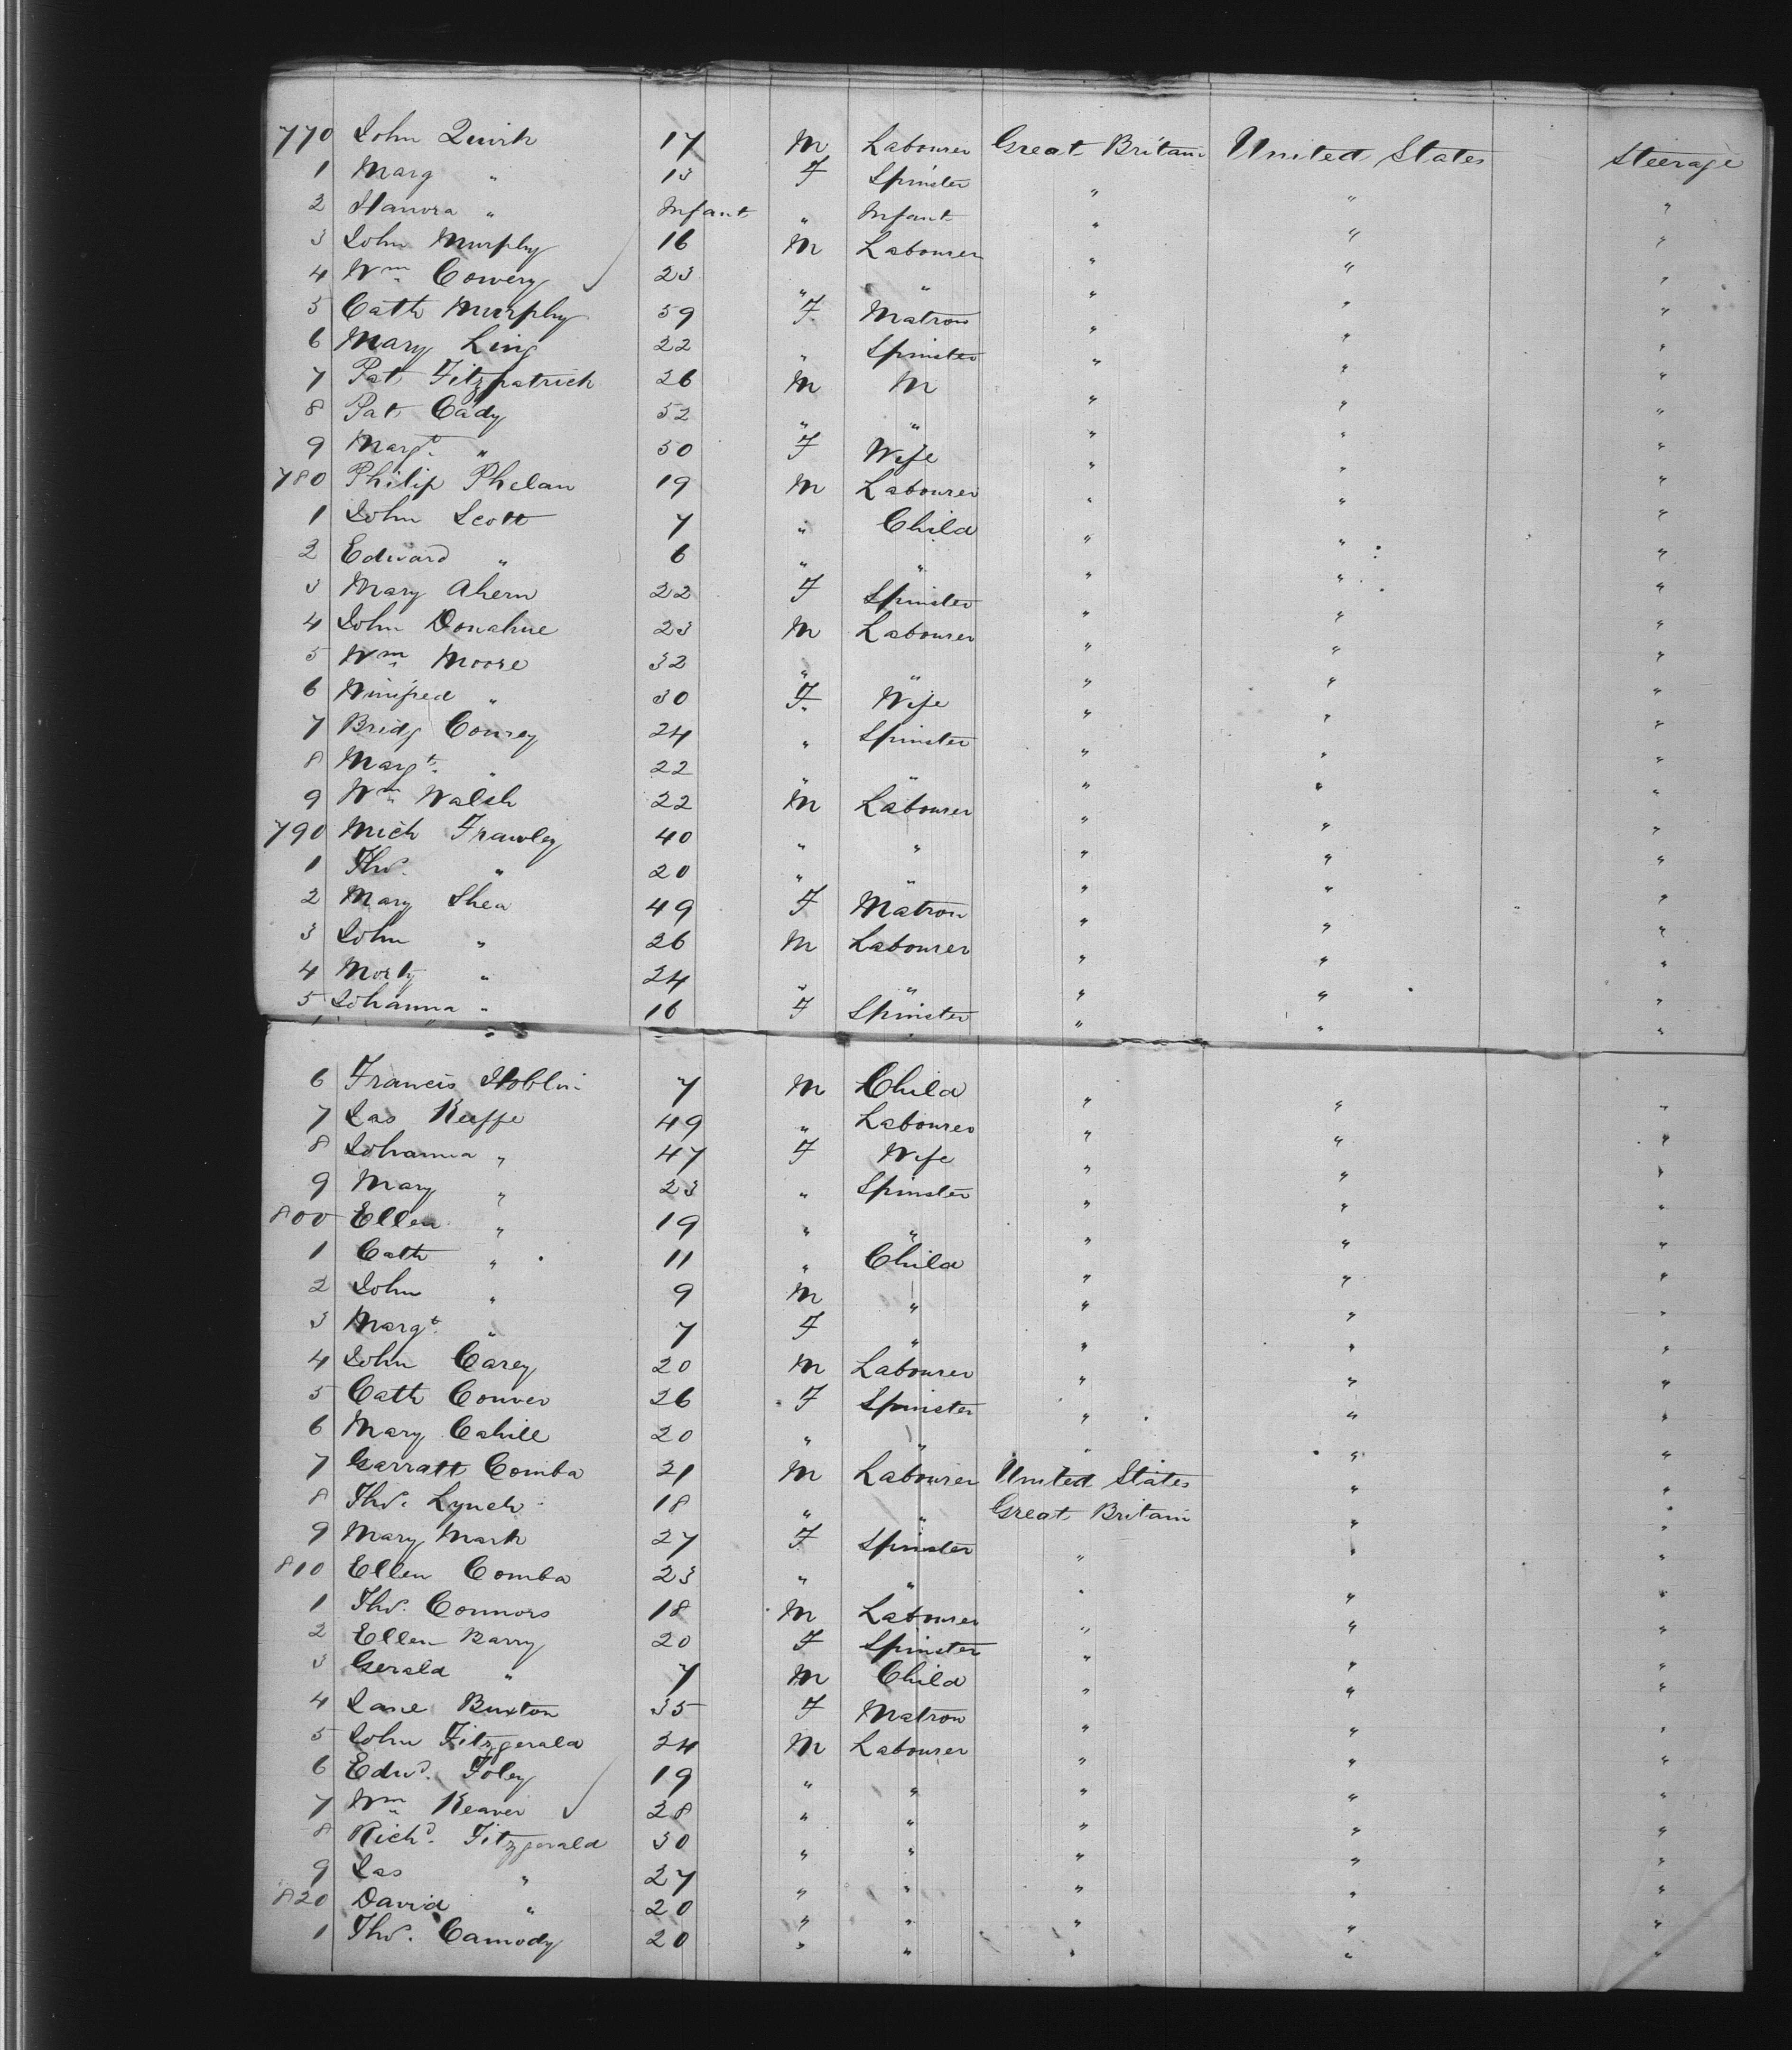 770 John Quirk 17 M Labourer Great Britain United States Steerage
1 Marg " 13 F Spinster " " "
2 Hanora " Infant " Infant " " "
3 John Murphy 16 M Labourer " " "
4 Wm Cowery 23 " " " " "
5 Cath Murphy 59 F. Matron " " "
6 Mary Ling 22 " Spinster " " "
7 Pat Fitzpatrick 26 M M " " "
8 Pat Cady 52 " " " " "
9 Margt. " 50 F Wife " " "
780 Philip Phelan 19 M Labourer " " "
1 John Scott 7 " Child " " "
2 Edward " 6 " " " " "
3 Mary Ahern 22 F Spinster " " "
4 John Donahue 23 M Labourer " " "
5 Wm Moore 32 " " " " "
6 Winifred " 30 F. Wife " " "
7 Bridg Conrey 24 " Spinster " " "
8 Margt. " 22 " " " " "
9 Wm Walsh 22 M Labourer " " "
790 Mich Frawley 40 " " " " "
1 Thos. " 20 " " " " "
2 Mary Shea 49 F Matron " " "
3 John " 26 M Labourer " " "
4 Morty " 24 " " " " "
5 Johanna " 16 F Spinster " " "
6 Francis 7 M Child " " "
7 Jas Keeffe 49 " Labourer " " "
8 Johanna " 47 F Wife " " "
9 Mary " 23 " Spinster " " "
800 Ellen " 19 " " " " "
1 Cath " 11 " Child " " "
2 John " 9 M " " " "
3 Margt. " 7 F " " " "
4 John Carey 20 M Labourer " " "
5 Cath Conver 26 F Spinster " " "
6 Mary Cahill 20 " " " " "
7 Garratt Comba 21 M Labourer United States " "
8 Thos. Lynch 18 " " Great Britain " "
9 Mary Mark 27 F Spinster " " "
810 Ellen Comba 23 " " " " "
1 Thos. Connors 18 M Labourer " " "
2 Ellen Barry 20 F Spinster " " "
3 Gerald " 7 M Child " " "
4 Jane Buxton 35 F Matron " " "
5 John Fitzgerald 24 M Labourer " " "
6 Edwd. Foley 19 " " " " "
7 Wm Keaver 28 " " " " "
8 Richd. Fitzgerald 30 " " " " "
9 Jas " 27 " " " " "
820 David " 20 " " " " "
1 Thos. Camody 20 " " " " "